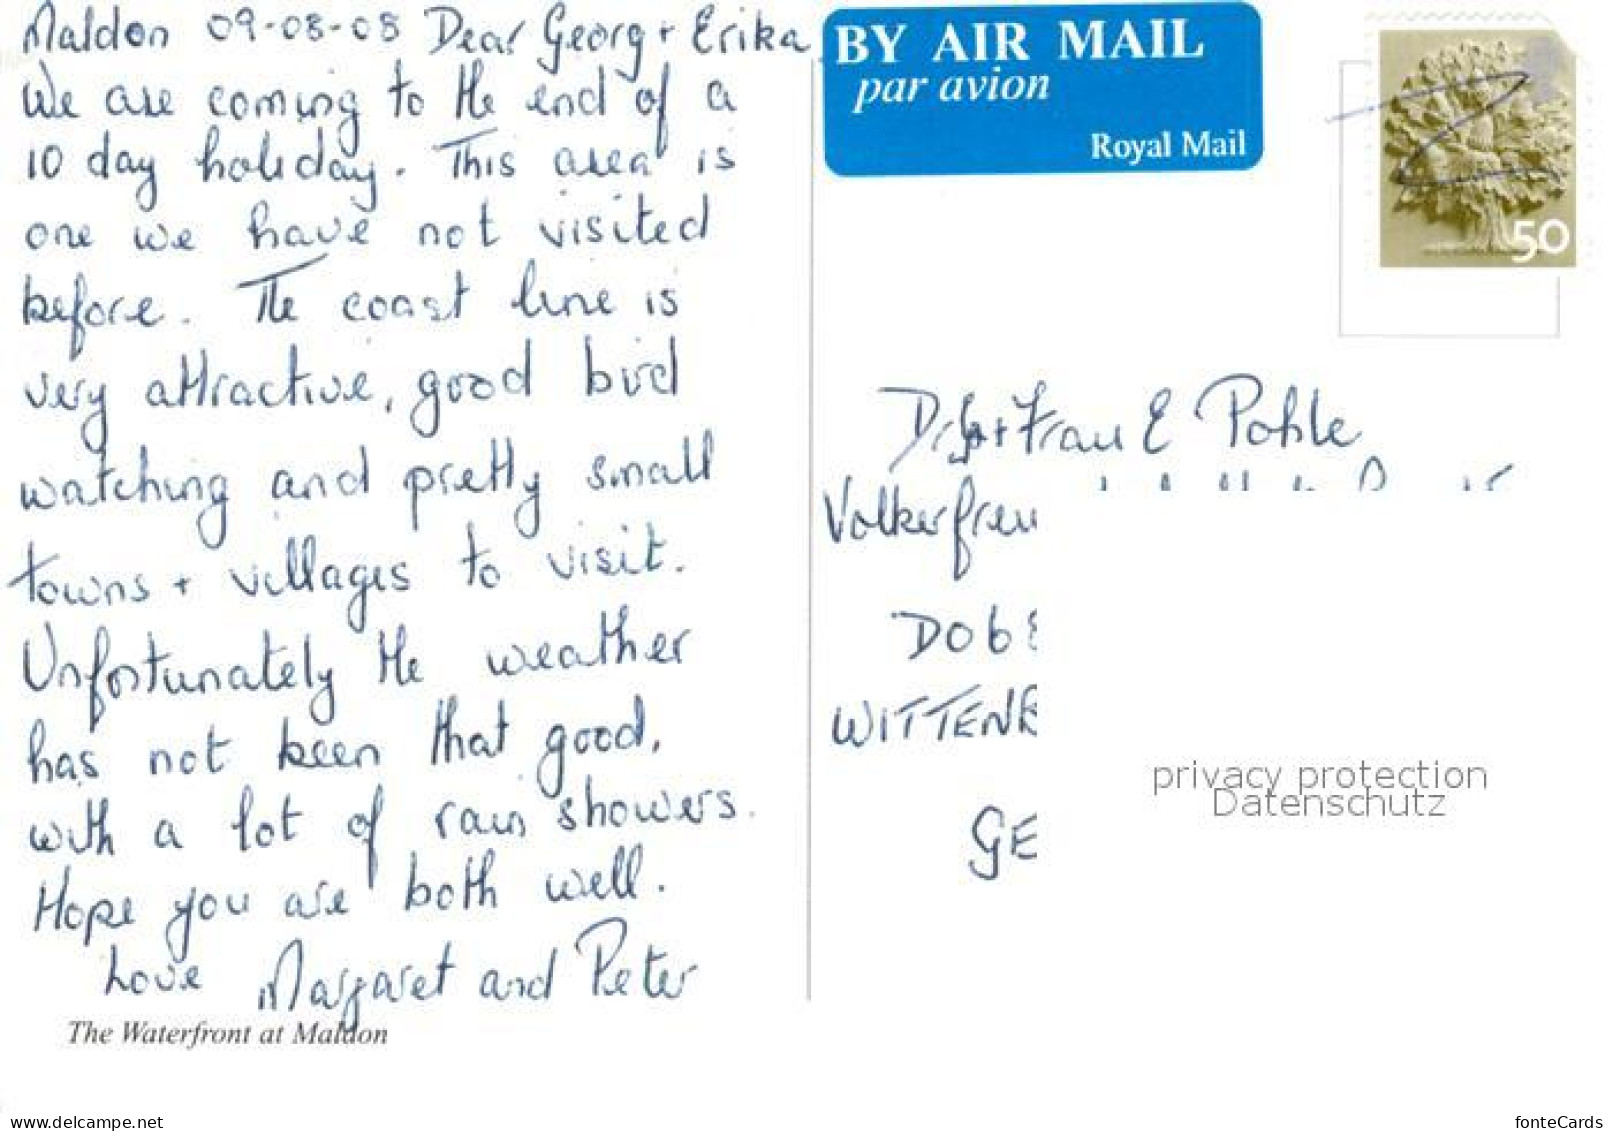 Maldon 09-08-08 Dear Georg + Erika
We are coming to the end of a
10 day holiday. This area is
one we have not visited
before. The coast line is
very attractive, good bird
watching and pretty small
towns + villages to visit.
Unfortunately the weather
has not been that good,
with a lot of rain showers.
Hope you are both well.
Love Margaret and Peter
The Waterfront at Maldon
BY AIR MAIL
par avion
Royal Mail
50
Frau E Pohle
Volkerfreu
DO6
WITTENB
GE
privacy protection
Datenschutz
www.delcampe.net
fonteCards